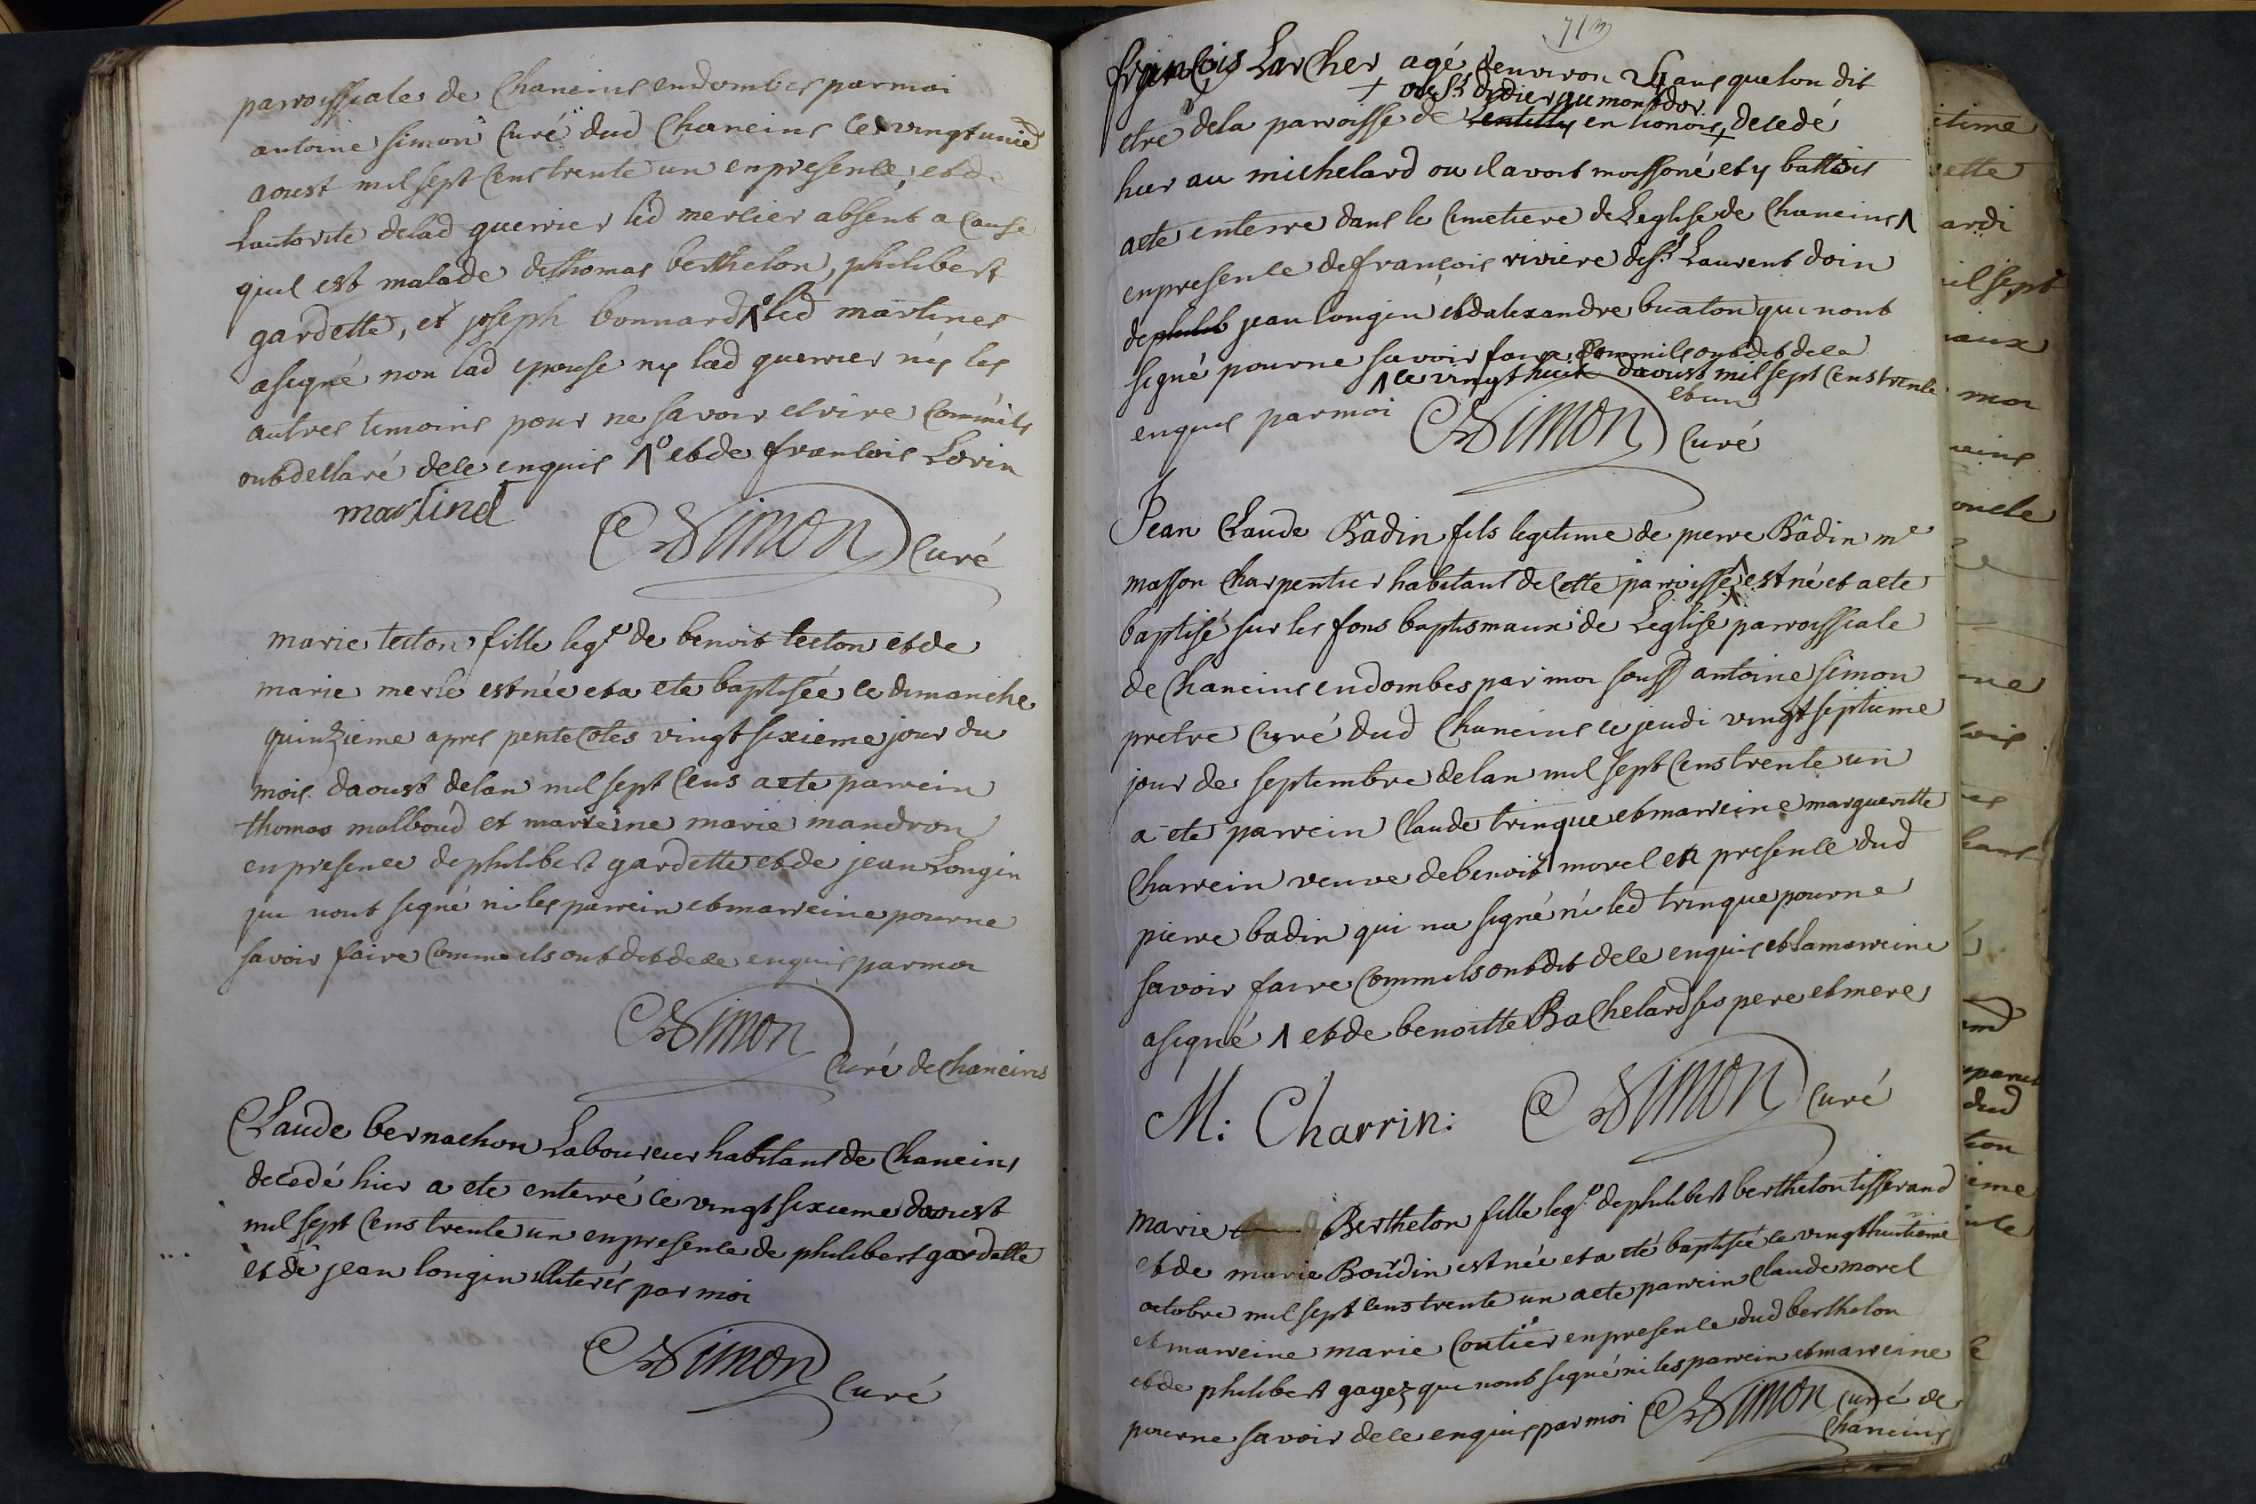 parroissiale de Chaneins en dombes par moi
antoine simon curé dud Chaneins le vingt unie
aoust mil sept cens trente un en presence, et de
Lautorite de lad guerrier led mercier absent a cause
quil est malade de thomas berthelon, philibert
gardette, et joseph bonnard led martinet
a signé non lad epouse ny lad guerrier n'y les
autres temoins pour ne savoir ecrire comm'ils
ont declaré de ce enquis et de francois Lorin
martinet
Simon curé
marie tecton fille leg.e de benoit tecton et de
marie merle est née et a ete baptisée le dimanche
quinzieme apres pentecotes vingt sixieme jour du
mois daoust de lan mil sept cens a ete parrein
thomas malboud et marreine marie mandron
en presence de philibert gardette et de jean Longin
qui nont signé ni les parrein et marreine pour ne
savoir faire comme ils ont dit de ce enquis par moi
Simon
Curé de Chaneins
Claude bernachon Laboureur habitant de Chaneins
decedé hier a ete enterré le vingt sixieme daoust
mil sept cens trente un en presence de philibert gardette
et de jean longin illiterés par moi
Simon curé
francois Larcher agé denviron 24 ans que lon dit
+ ou St didier au mont dor
etre de la parroisse de Lentilly en lionois + decedé
hier au michelard ou il avoit moissoné et y battoit
a ete enterre dans le cimetiere de Leglise de Chaneins
en presence de françois riviere de St Laurent doin
de philib jean longin et dalexandre buaton qui nont
signé pour ne savoir faire comm'ils ont dit de ce
le vingt huit daoust mil sept cens trente
et un
enquis par moi Simon curé
Jean Claude Badin fils legitime de pierre Badin me
masson charpentier habitant de cette parroisse est né et a ete
baptisé sur les fons baptismaux de Leglise parroissiale
de Chaneins en dombes par moi souss antoine simon
pretre curé dud Chaneins le jeudi vingt septieme
jour de septembre de lan mil sept cens trente un
a ete parrein Claude trinque et marreine margueritte
Charrein veuve de benoit morel en presence dud
pierre badin qui na signé n'i led trinque pour ne
savoir faire comm'ils ont dit de ce enquis et la marreine
a signé et de benoitte Bachelard ses pere et mere
M: Charrin: Simon curé
marie Berthelon fille leg.e de philibert berthelon tisserand
et de marie Bourdin est née et a eté baptisée le vingt huitieme
octobre mil sept cens trente un a ete parrein Claude morel
et marreine marie Coutier en presence dud berthelon
et de philibert gagez qui nont signé ni les parrein et marreine
pour ne savoir de ce enquis par moi Simon curé de
Chaneins